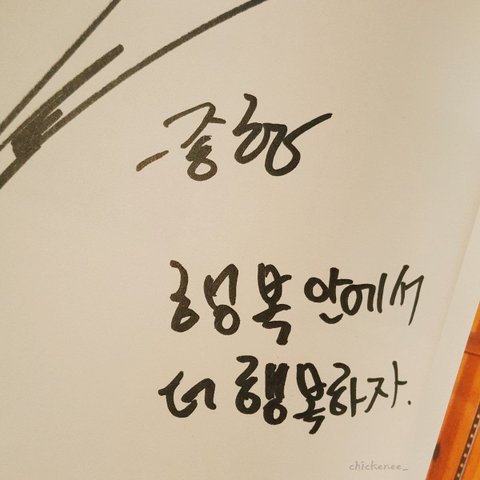 -종항
행복 안에서
더 행복하자.
chickenee_